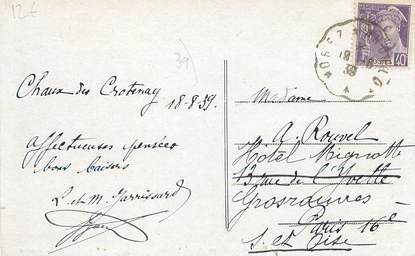 12€
39
MOREZ
18-8
39
POSTES
40
Chaux des Crotenay
18-8-39.
Madame
A. Rouvel
affectueuses pensées
bons baisers
Hôtel Mignotte
13 rue de l'Yvette
Grosrouvres
Paris 16e
S. et Oise
L. et M. Jarrissard